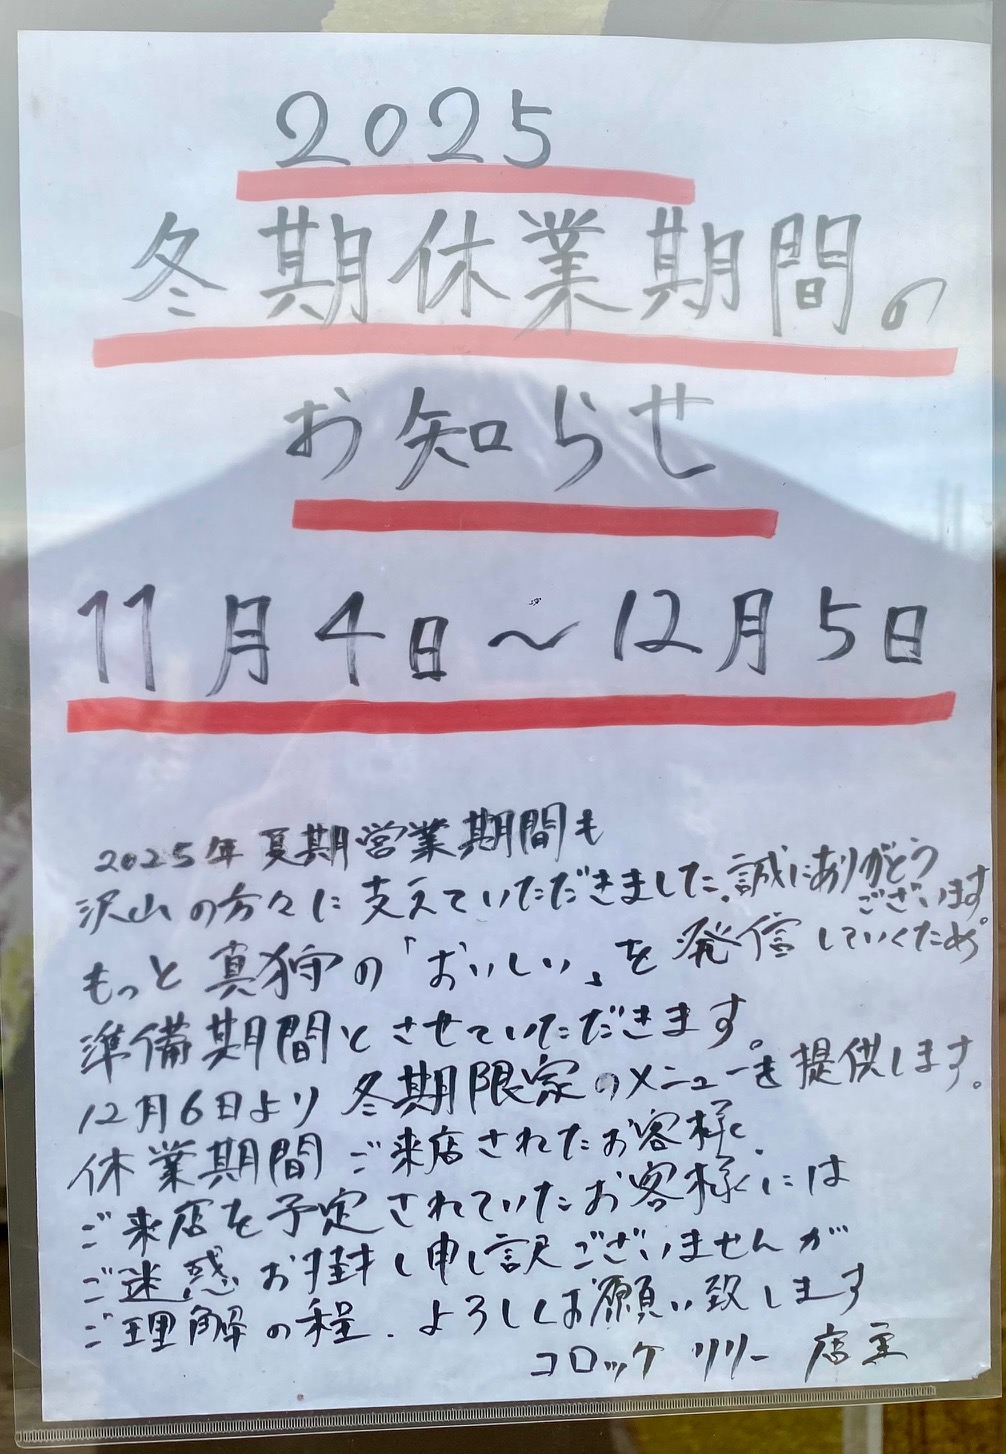 2025
冬期休業期間の
お知らせ
11月4日～12月5日
2025年 夏期営業期間も
沢山の方々に支えていただきました。誠にありがとう
ございます
もっと真狩の「おいしい」を発信していくため。
準備期間とさせていただきます。
12月6日より 冬期限定のメニューを提供します。
休業期間 ご来店されたお客様、
ご来店を予定されていたお客様には
ご迷惑お掛けし申し訳ございませんが
ご理解の程、よろしくお願い致します
コロッケ リリー 店主